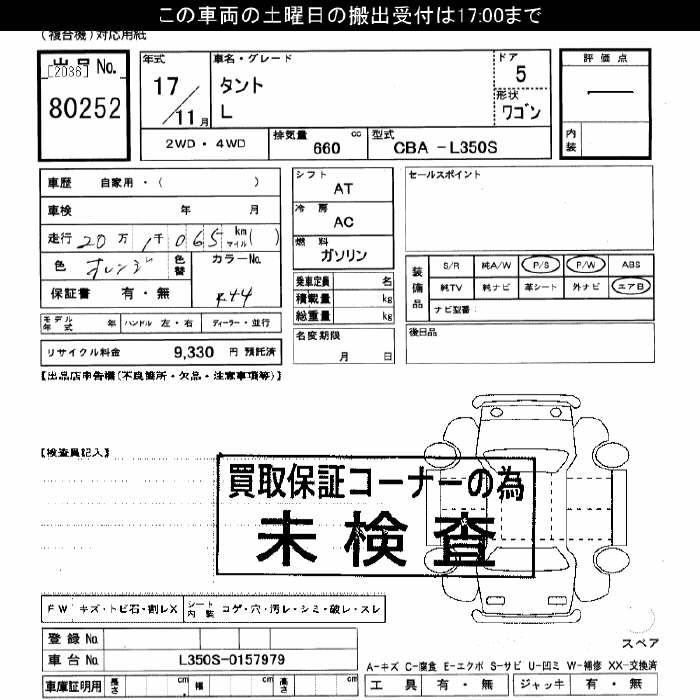 この車両の土曜日の搬出受付は17:00まで
(複合機)対応用紙
出品No.
[2036]
80252
年式
17
11月
車名・グレード
タント
L
ドア
5
形状
ワゴン
評価点
―
内装
2WD・4WD
排気量 cc
660
型式
CBA -L350S
車歴 自家用・( )
車検 年 月
走行 20万1千065 km マイル( )
色 オレンジ 色替 カラーNo.
保証書 有・無 R44
モデル年式 年 ハンドル 左・右 ディーラー・並行
リサイクル料金 9,330 円 預託済
シフト
AT
冷房
AC
燃料
ガソリン
乗車定員 名
積載量 kg
総重量 kg
名変期限
月 日
セールスポイント
装備品
S/R 純A/W P/S P/W ABS
純TV 純ナビ 革シート 外ナビ エアB
ナビ型番
後日品
【出品店申告欄(不良箇所・欠品・注意事項等)】
【検査員記入】
買取保証コーナーの為
未検査
FW キズ・トビ石・割レX シート内装 コゲ・穴・汚レ・シミ・破レ・スレ
登録No.
車台No. L350S-0157979
車庫証明用 長さ cm 幅 cm 高さ cm
スペア
A-キズ C-腐食 E-エクボ S-サビ U-凹ミ W-補修 XX-交換済
工具 有・無 ジャッキ 有・無